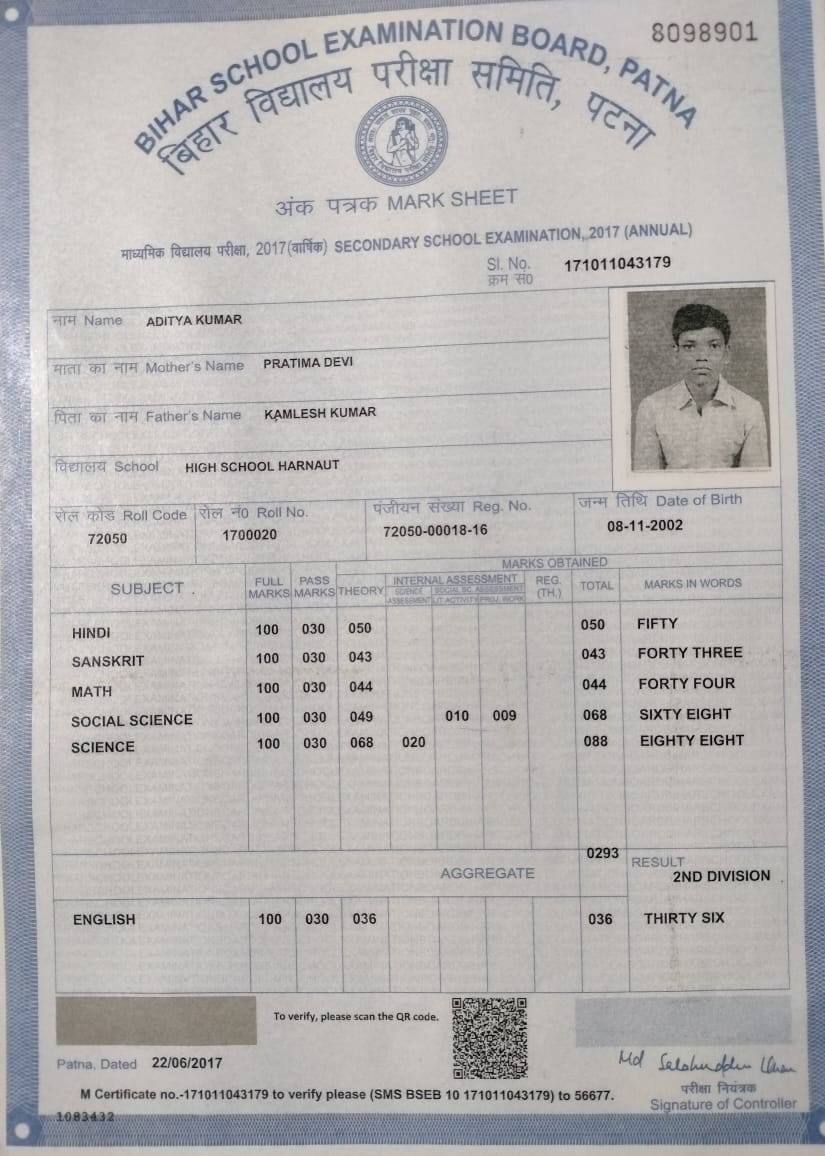 8098901
BIHAR SCHOOL EXAMINATION BOARD, PATNA
बिहार विद्यालय परीक्षा समिति, पटना
अंक पत्रक MARK SHEET
माध्यमिक विद्यालय परीक्षा, 2017(वार्षिक) SECONDARY SCHOOL EXAMINATION, 2017 (ANNUAL)
Sl. No. 171011043179
क्रम सं0
नाम Name ADITYA KUMAR
माता का नाम Mother's Name PRATIMA DEVI
पिता का नाम Father's Name KAMLESH KUMAR
विद्यालय School HIGH SCHOOL HARNAUT
रोल कोड Roll Code रोल नं0 Roll No. पंजीयन संख्या Reg. No. जन्म तिथि Date of Birth
72050 1700020 72050-00018-16 08-11-2002
MARKS OBTAINED
SUBJECT FULL MARKS PASS MARKS THEORY INTERNAL ASSESSMENT REG. (TH.) TOTAL MARKS IN WORDS
SCIENCE ASSESSMENT SOCIAL SC. ASSESSMENT
LIT ACTIVITY PROJ. WORK
HINDI 100 030 050 050 FIFTY
SANSKRIT 100 030 043 043 FORTY THREE
MATH 100 030 044 044 FORTY FOUR
SOCIAL SCIENCE 100 030 049 010 009 068 SIXTY EIGHT
SCIENCE 100 030 068 020 088 EIGHTY EIGHT
AGGREGATE 0293 RESULT
2ND DIVISION
ENGLISH 100 030 036 036 THIRTY SIX
To verify, please scan the QR code.
Patna, Dated 22/06/2017
Md
परीक्षा नियंत्रक
M Certificate no.-171011043179 to verify please (SMS BSEB 10 171011043179) to 56677.
Signature of Controller
1083432